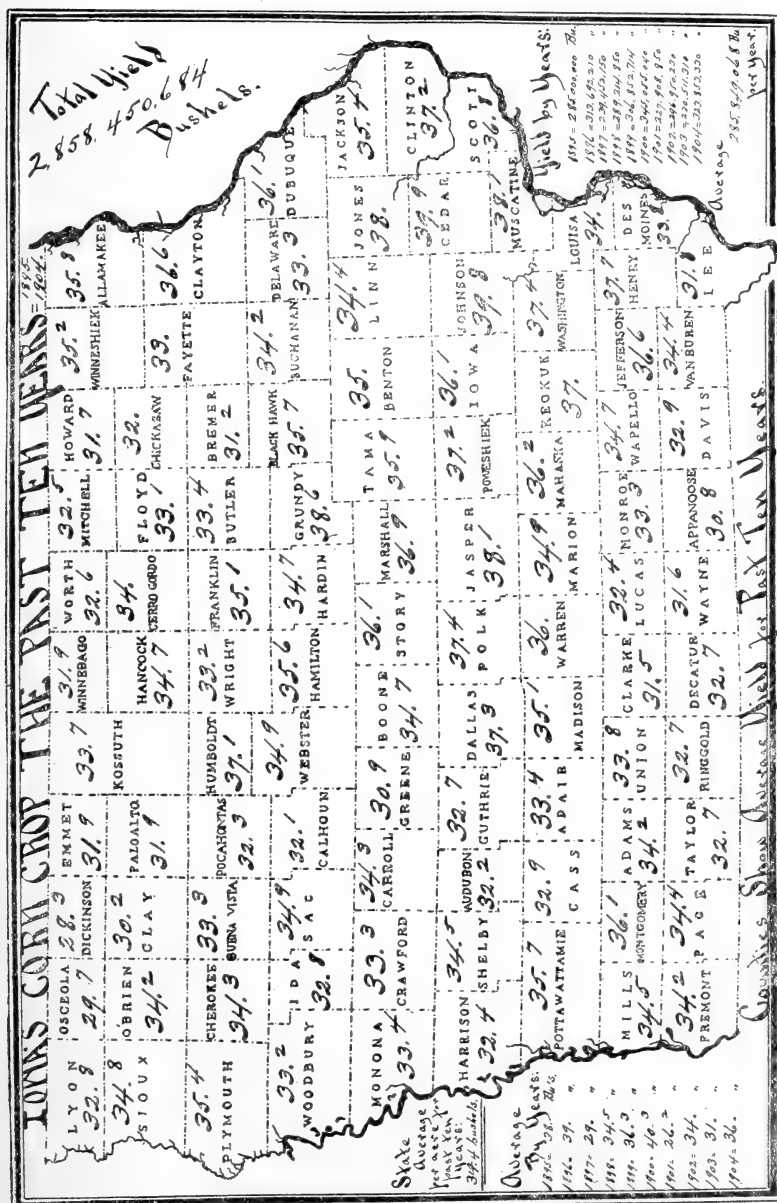 IOWAS CORN CROP THE PAST TEN YEARS = 1895 = 1904.
Total Yield
2,858,450,684
Bushels.
LYON
32.8
OSCEOLA
29.7
DICKINSON
28.3
EMMET
31.9
KOSSUTH
33.7
WINNEBAGO
31.9
WORTH
32.6
MITCHELL
32.5
HOWARD
31.7
WINNESHIEK
35.2
ALLAMAKEE
35.8
SIOUX
34.8
O'BRIEN
34.2
CLAY
30.2
PALOALTO
31.9
HANCOCK
34.7
CERRO GORDO
34.
FLOYD
33.1
CHICKASAW
32.
FAYETTE
33.
CLAYTON
36.6
PLYMOUTH
35.4
CHEROKEE
34.3
BUENA VISTA
33.3
POCAHONTAS
32.3
HUMBOLDT
37.1
WRIGHT
33.2
FRANKLIN
35.1
BUTLER
33.4
BREMER
31.2
WOODBURY
33.2
IDA
32.8
SAC
34.9
CALHOUN
32.1
WEBSTER
34.9
HAMILTON
35.6
HARDIN
34.7
GRUNDY
38.6
BLACK HAWK
35.7
BUCHANAN
34.2
DELAWARE
33.3
DUBUQUE
36.1
MONONA
33.4
CRAWFORD
33.3
CARROLL
34.3
GREENE
30.9
BOONE
34.7
STORY
36.1
MARSHALL
36.9
TAMA
35.9
BENTON
35.
LINN
34.4
JONES
38.
JACKSON
35.4
HARRISON
32.4
SHELBY
34.5
AUDUBON
32.2
GUTHRIE
32.7
DALLAS
37.3
POLK
37.4
JASPER
38.1
POWESHIEK
37.2
IOWA
36.1
JOHNSON
39.8
CEDAR
39.9
CLINTON
37.2
SCOTT
36.8
MUSCATINE
38.1
POTTAWATTAMIE
35.7
CASS
32.9
ADAIR
33.4
MADISON
35.1
WARREN
36.
MARION
34.9
MAHASKA
36.2
KEOKUK
37.
WASHINGTON
37.4
LOUISA
34.
MILLS
34.5
MONTGOMERY
36.1
ADAMS
34.2
UNION
33.8
CLARKE
31.5
LUCAS
32.4
MONROE
33.3
WAPELLO
34.7
JEFFERSON
36.6
HENRY
37.7
DES MOINES
33.8
FREMONT
34.2
PAGE
34.4
TAYLOR
32.7
RINGGOLD
32.7
DECATUR
32.7
WAYNE
31.6
APPANOOSE
30.8
DAVIS
32.9
VAN BUREN
34.4
LEE
31.8
State
Average
per acre for
past ten
years:
Average
By Years:
1895 = 28.
1896 = 39. "
1897 = 29. "
1898 = 34.5 "
1899 = 36.3 "
1900 = 40.3 "
1901 = 26.2 "
1902 = 34. "
1903 = 31. "
1904 = 36. "
Yield by Years:
Average
285,849,068 Bu
per year.
Counties Show Average Yield for Past Ten Years.